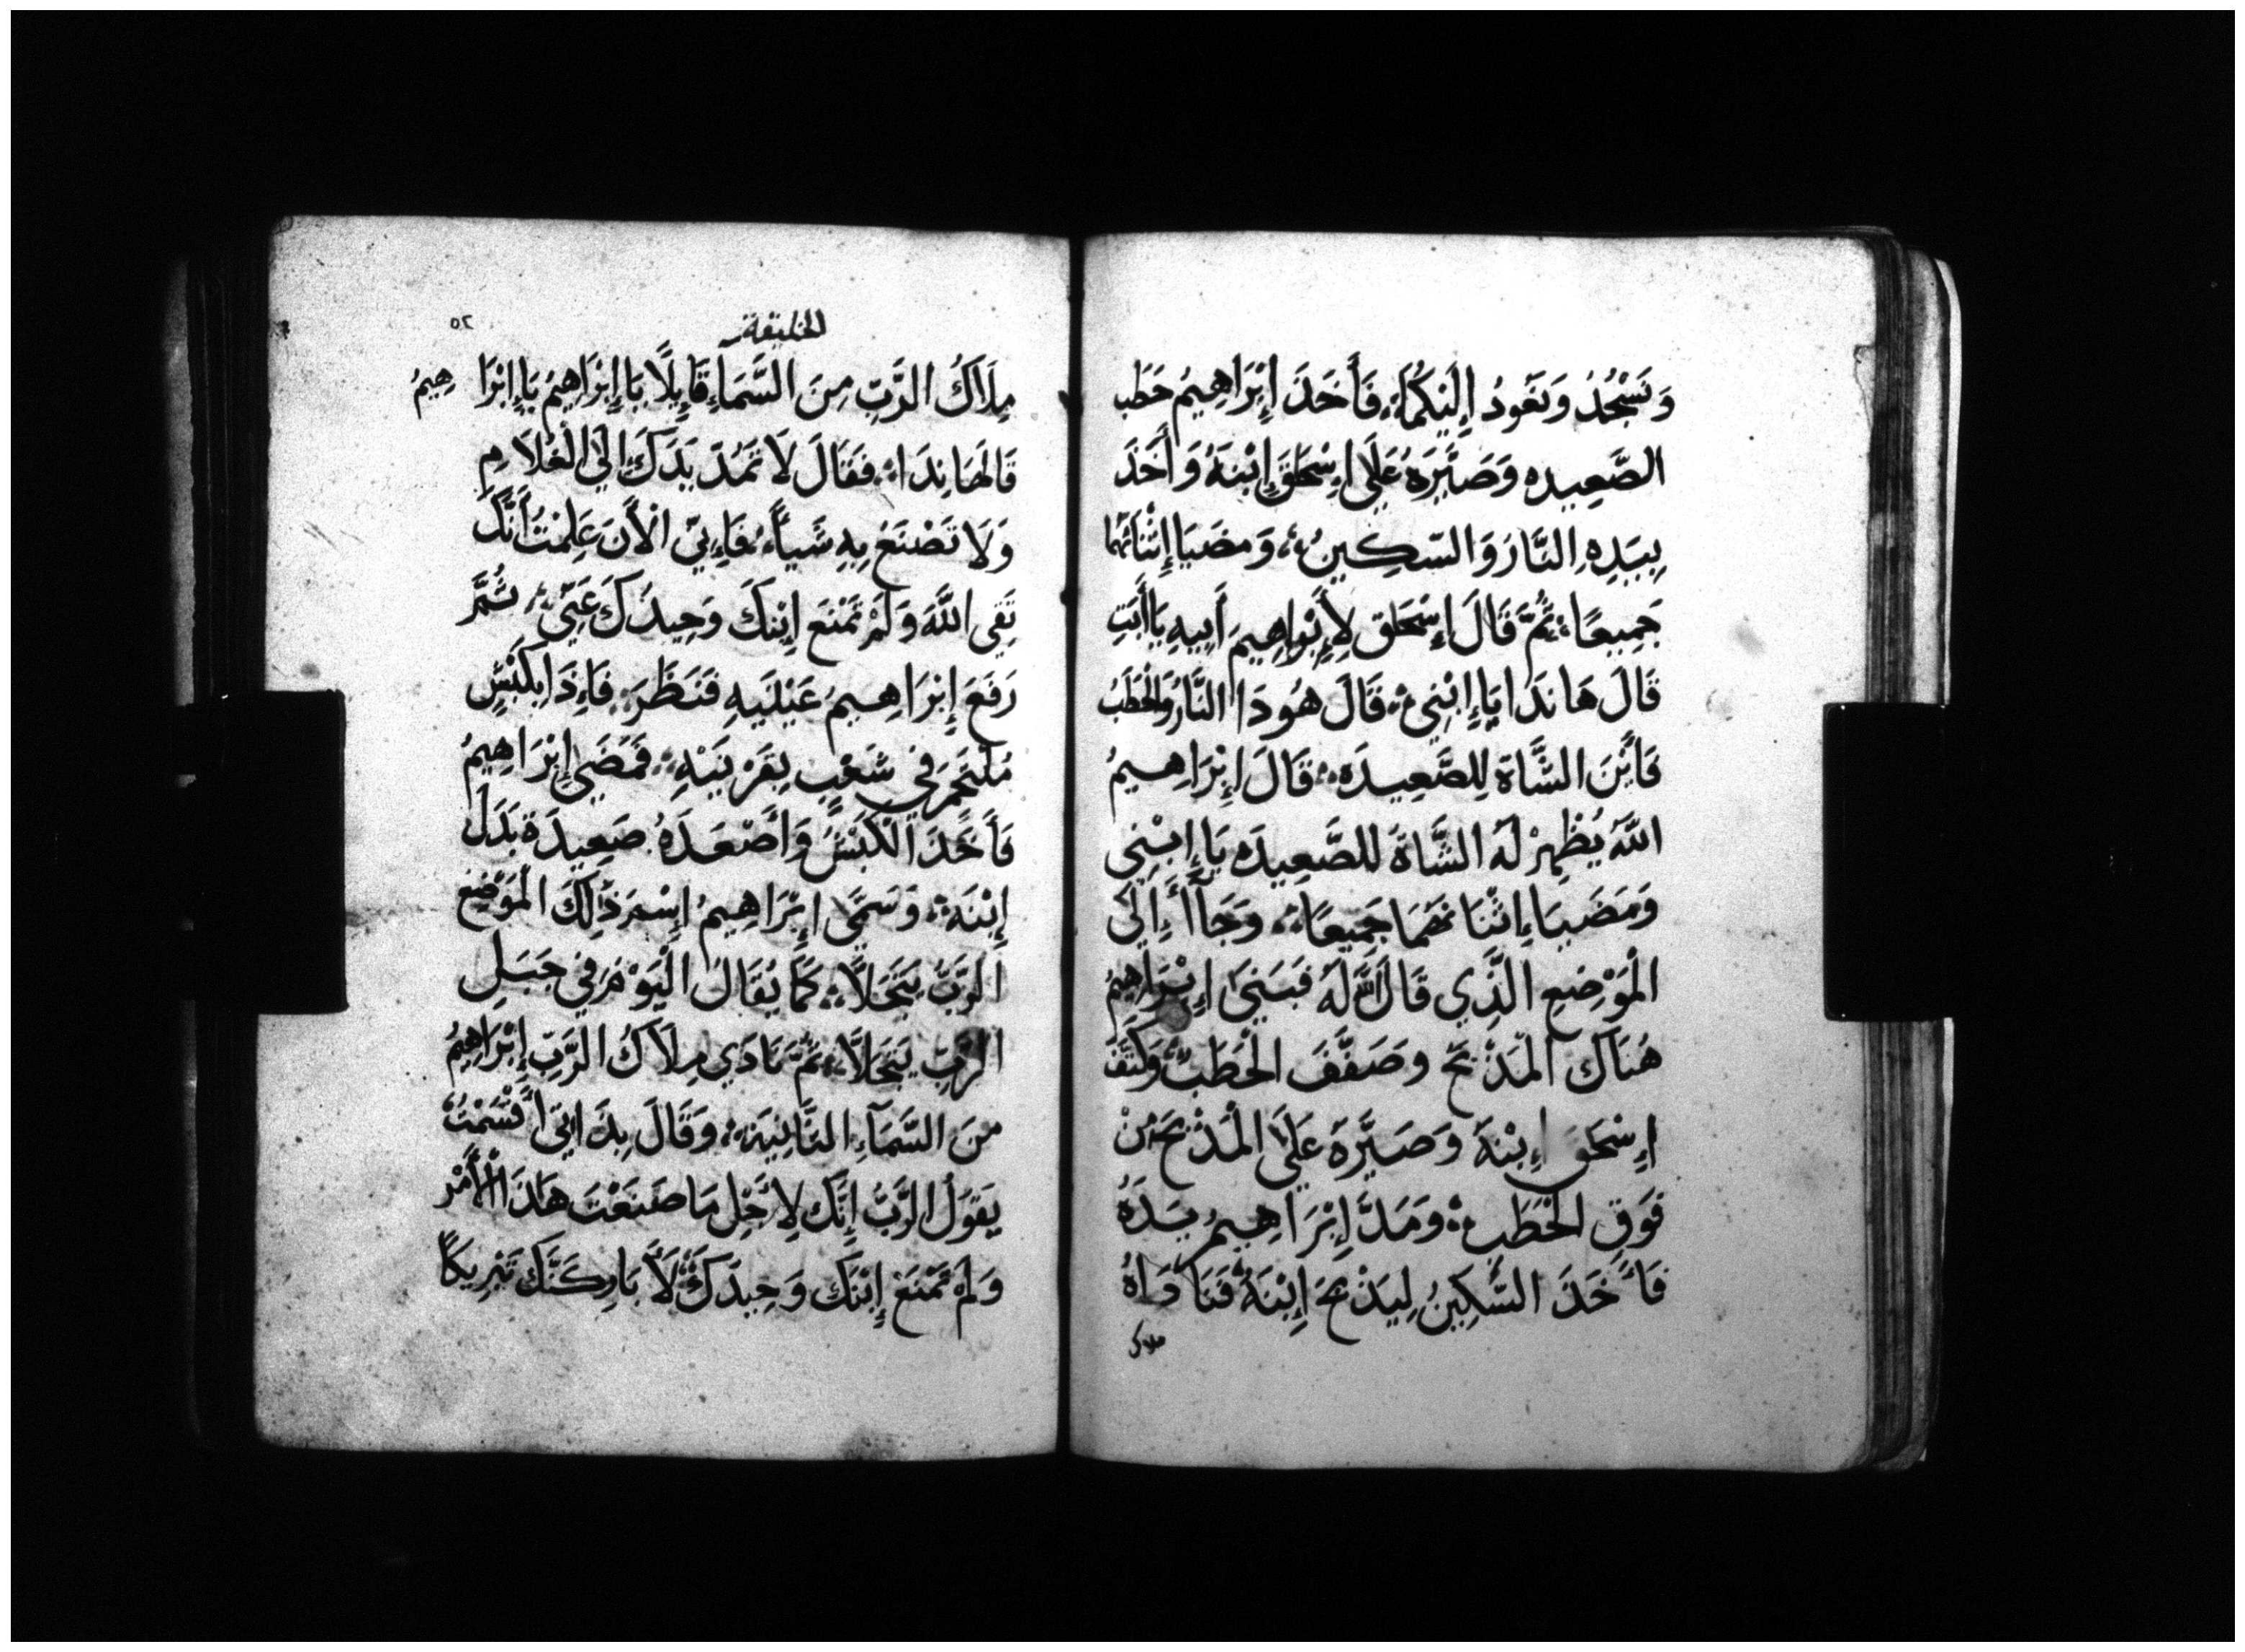 وَنَسْجُدُ وَنَعُودُ إِلَيْكُمَا؛ فَأَخَذَ إِبْرَاهِيمُ حَطَب
الصَّعِيدِه وَصَيَّرَهُ عَلَى إِسْحَاقَ إِبْنِهُ وَأَخَذَ
بِيَدِهِ النَّارَ وَالسِّكِينُ؛ وَمضَيَا إِثْنَانُهُمَا
جَمِيعًا؛ ثُمَّ قَالَ إِسْحَاق لِإِبْرَاهِيمَ أَبِيهِ يَاأَبَتِ
قَالَ هَانَدَا يَا إِبْنِي؛ قَالَ هُودَا النَّارُ وَالْحَطَبُ
فَأَيْنَ الشَّاة لِلصَّعِيدَه؛ قَالَ إِبْرَاهِيمُ
اللَّهُ يُظْهِرْ لَهُ الشَّاةَ للصَّعِيدَه يَا إِبْنِي
وَمَضَيَا إِثْنَا نهُمَا جَمِيعًا؛ وَجَاآ إِلَى
الْمَوْضِعِ الَّذِي قَالَ اللَّه لَهُ فَبَنَى إِبْرَاهِيمُ
هُنَاكَ الْمَذْبَحَ وَصَفَّفَ الْحَطَبَ وَكَتَّفَ
إِسْحَقَ إِبْنِهُ وَصَيَّرَهُ عَلَى الْمَذْبَحَ مِنْ
فَوْقِ الْحَطَبِ؛ وَمَدَّ إِبْرَاهِيمُ يَدَهُ
فَأَخَذَ السِّكِينُ لِيَذْبَحَ إِبْنَهُ فَنَادَاهُ
ملاك
الخليقة
٥٢
مِلَاكُ الرَّبِّ مِنَ السَّمَاءِ قَايِلًا يَا إِبْرَاهِيمُ يَا إِبْرَاهِيمُ
قَالَ هَانَدَا؛ فَقَالَ لَا تَمُدَّ يَدَكَ إِلَى الْغُلَامِ
وَلَا تَصْنَعْ بِهِ شَيأً؛ فَإِنِّي الْأَنَ عَلِمْتُ أَنَّكَ
تَقِي اللَّهَ وَلَمْ تَمْنَعَ إِبْنكَ وَحِيدُكَ عَنِّي؛ ثُمَّ
رَفَعَ إِبْرَاهِيمُ عَيْنَيهِ فَنَظَرَ؛ فَإِذَا بِكَبْشٍ
مُلْتَحِمَ فِي شَعْبٍ بِقَرْنَيْهِ؛ فَمَضَى إِبْرَاهِيمُ
فَأَخَذَ الْكَبْشَ وَأَصْعَدَهُ صَعِيدَة بَدَلَ
إِبْنَهُ؛ وَسَمَّى إِبْرَاهِيمُ إِسْمَ ذَلِكَ الْمَوْضِعَ
الرَّبُّ يَتَجَلَّا؛ كَمَا يُقَالُ الْيَوْمَ فِي جَبَلِ
الرَّبِّ يَتَجَلَّا؛ ثُمَّ نَادَي مِلَاكُ الرَّبِّ إِبْرَاهِيمُ
مِنَ السَّمَآءِ الثَّانِيَه؛ وَقَالَ بِذَاتِي أَقْسَمْتُ
يَقُولُ الرَّبُّ إِنَّكَ لِأَجْلِ مَا صَنَعْتَ هَذَا الْأَمْرُ
وَلَمْ تَمْنَعَ إِبْنَكَ وَحِيدَكَ؛ لَأُبَارِكَنَّكَ تَبْرِيكًا